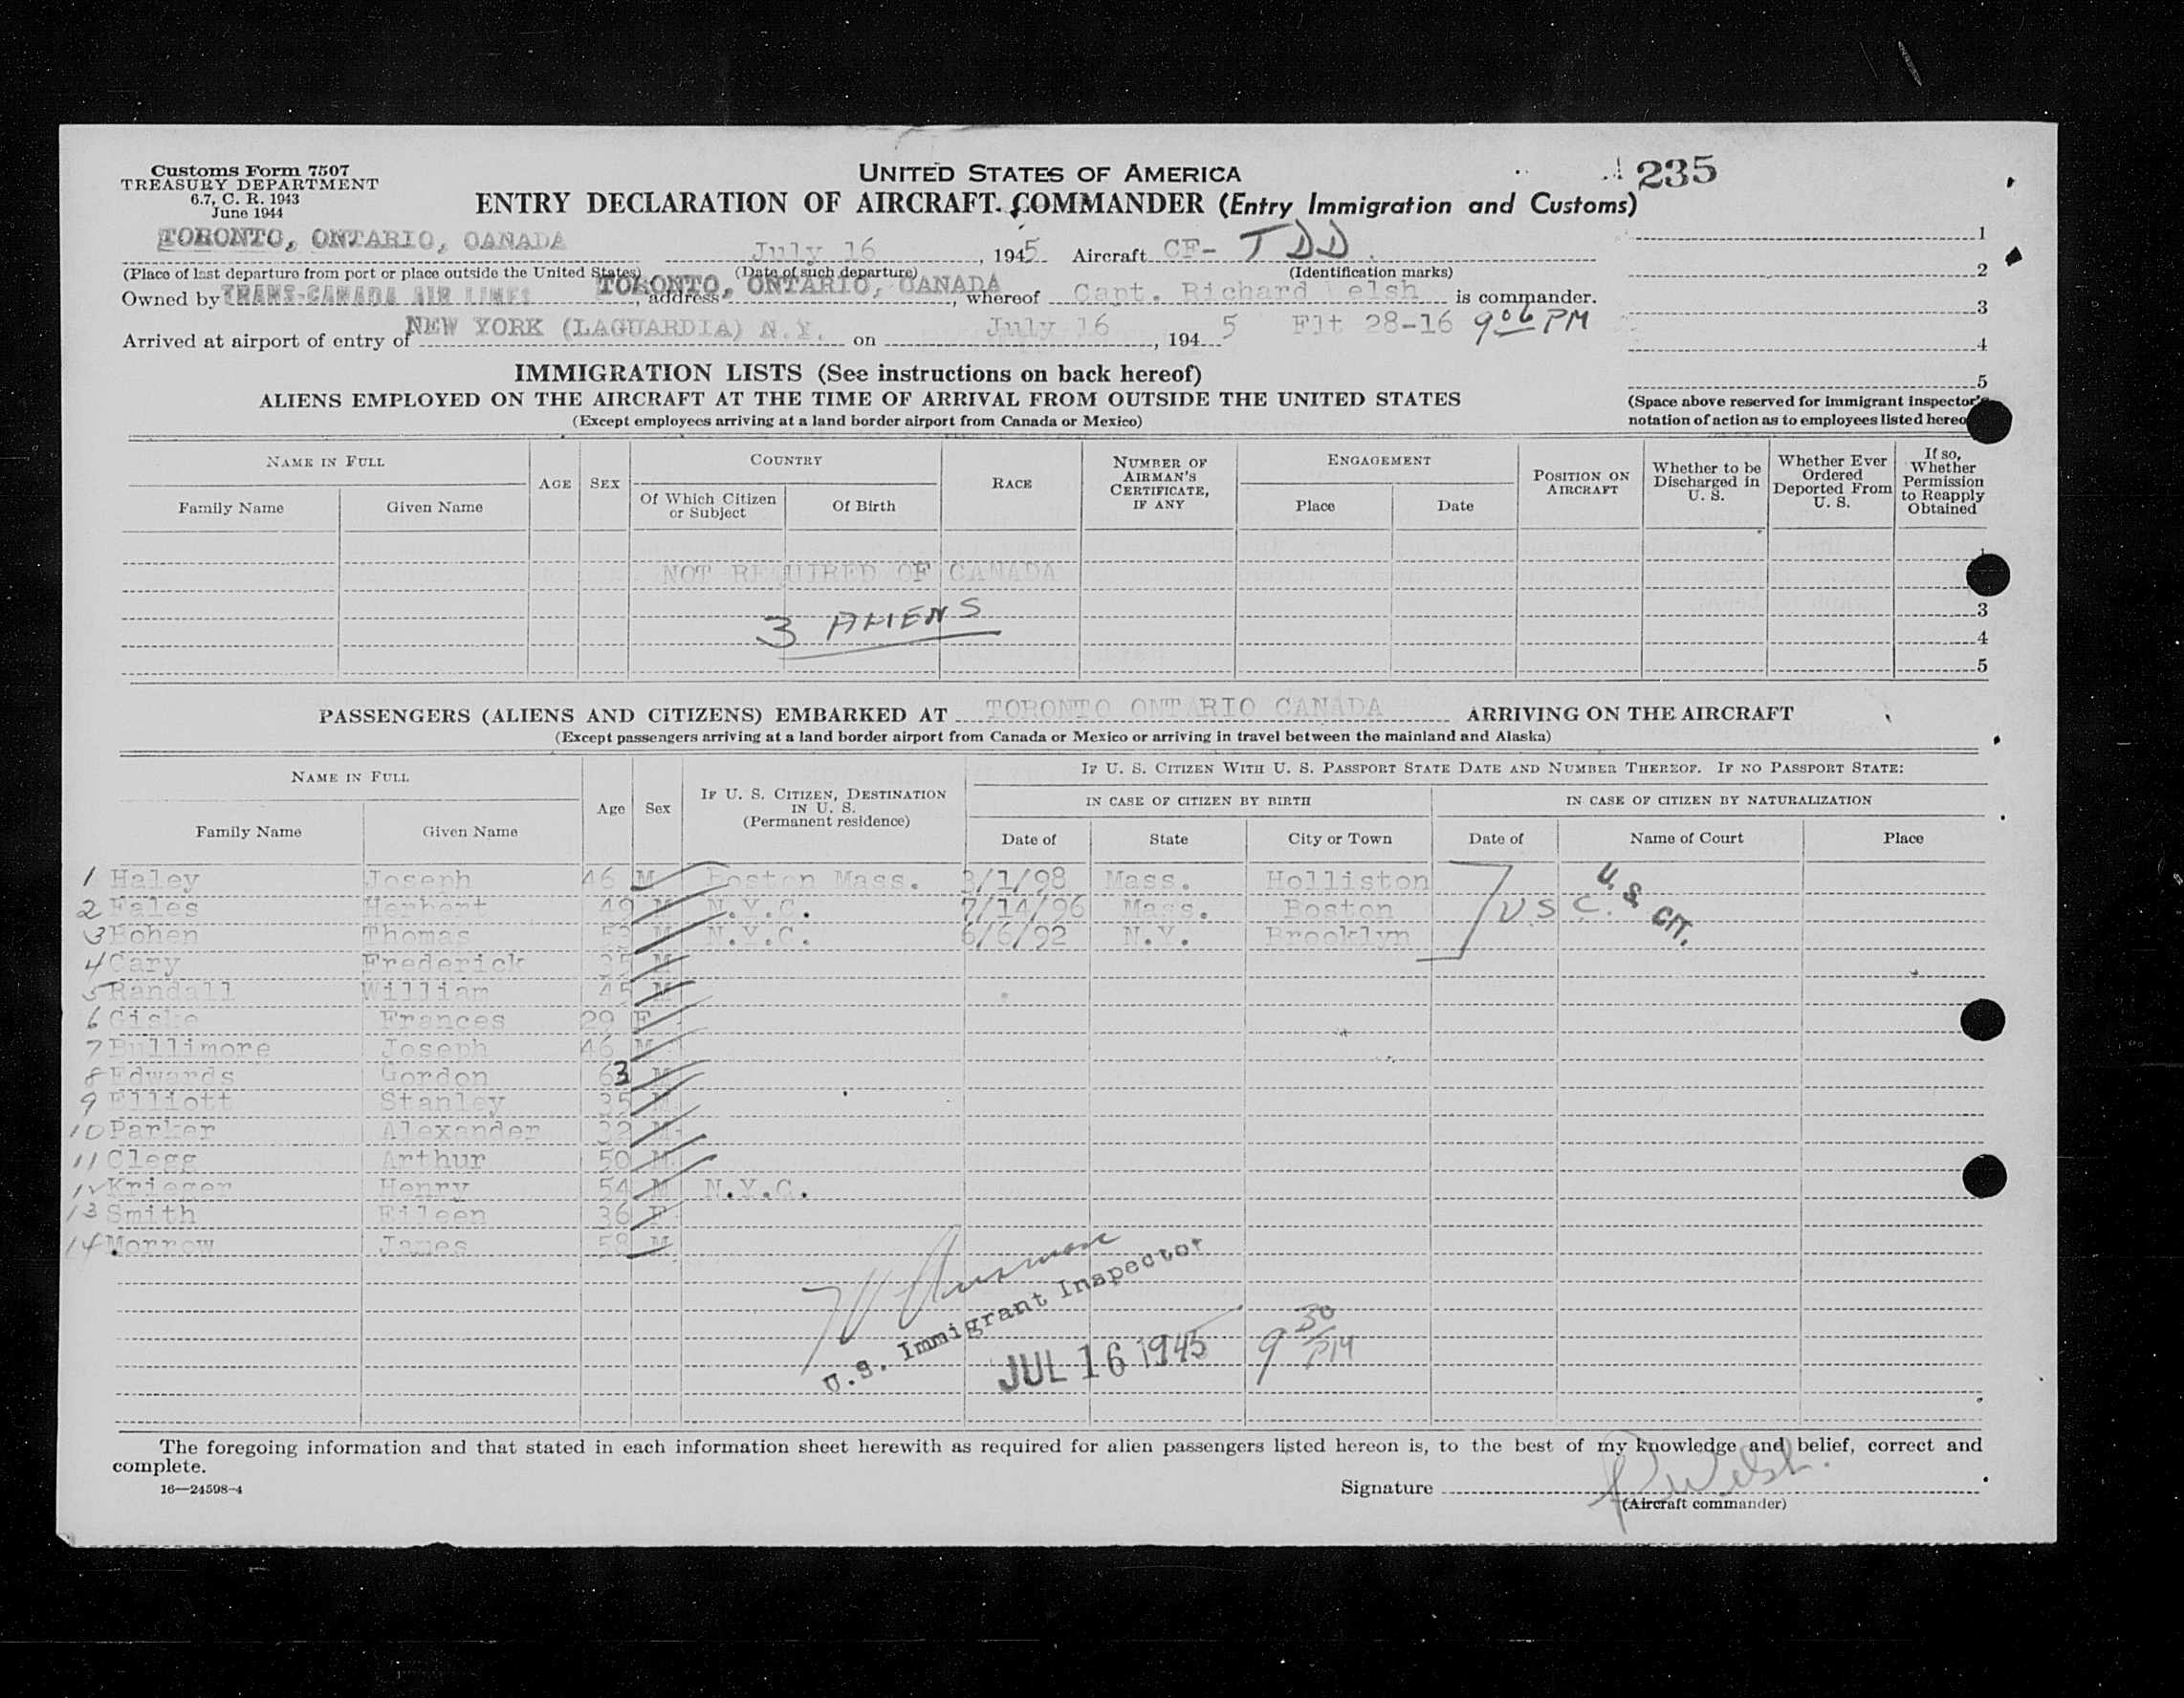 Customs Form 7507
TREASURY DEPARTMENT
6.7, C. R. 1943
June 1944
UNITED STATES OF AMERICA
235
ENTRY DECLARATION OF AIRCRAFT COMMANDER (Entry Immigration and Customs)
TORONTO, ONTARIO, CANADA July 16, 1945 Aircraft CF- TDD
1
(Place of last departure from port or place outside the United States) (Date of such departure) (Identification marks)
2
Owned by TRANS-CANADA AIR LINES, address TORONTO, ONTARIO, CANADA, whereof Capt. Richard Welsh is commander.
3
Arrived at airport of entry of NEW YORK (LAGUARDIA) N.Y. on July 16, 1945 Flt 28-16 9 06 PM
4
5
IMMIGRATION LISTS (See instructions on back hereof)
ALIENS EMPLOYED ON THE AIRCRAFT AT THE TIME OF ARRIVAL FROM OUTSIDE THE UNITED STATES
(Except employees arriving at a land border airport from Canada or Mexico)
(Space above reserved for immigrant inspector's
notation of action as to employees listed hereo
NAME IN FULL
Family Name Given Name
AGE SEX
COUNTRY
Of Which Citizen or Subject Of Birth
RACE
NUMBER OF AIRMAN'S CERTIFICATE, IF ANY
ENGAGEMENT
Place Date
POSITION ON AIRCRAFT
Whether to be Discharged in U. S.
Whether Ever Ordered Deported From U. S.
If so, Whether Permission to Reapply Obtained
1
NOT REQUIRED OF CANADA
3 ALIENS
3
4
5
PASSENGERS (ALIENS AND CITIZENS) EMBARKED AT TORONTO ONTARIO CANADA ARRIVING ON THE AIRCRAFT
(Except passengers arriving at a land border airport from Canada or Mexico or arriving in travel between the mainland and Alaska)
NAME IN FULL
Family Name Given Name
Age Sex
IF U. S. CITIZEN, DESTINATION IN U. S. (Permanent residence)
IF U. S. CITIZEN WITH U. S. PASSPORT STATE DATE AND NUMBER THEREOF. IF NO PASSPORT STATE:
IN CASE OF CITIZEN BY BIRTH
Date of State City or Town
IN CASE OF CITIZEN BY NATURALIZATION
Date of Name of Court Place
1 Haley Joseph 46 M Boston Mass. 8/1/98 Mass. Holliston
2 Fales Herbert 49 M N.Y.C. 7/14/96 Mass. Boston
U S C. U. S CIT.
3 Bohen Thomas 53 M N.Y.C. 6/6/92 N.Y. Brooklyn
4 Cary Frederick 35 M
5 Randall William 45 M
6 Giske Frances 29 F
7 Bullimore Joseph 46 M
8 Edwards Gordon 63 M
9 Elliott Stanley 35 M
10 Parker Alexander 32 M
11 Clegg Arthur 50 M
12 Krieger Henry 54 M N.Y.C.
13 Smith Eileen 36 F
14 Morrow James 58 M
U.S. Immigrant Inspector
JUL 16 1945 9 30 PM
The foregoing information and that stated in each information sheet herewith as required for alien passengers listed hereon is, to the best of my knowledge and belief, correct and
complete.
16—24598-4
Signature R Welsh.
(Aircraft commander)